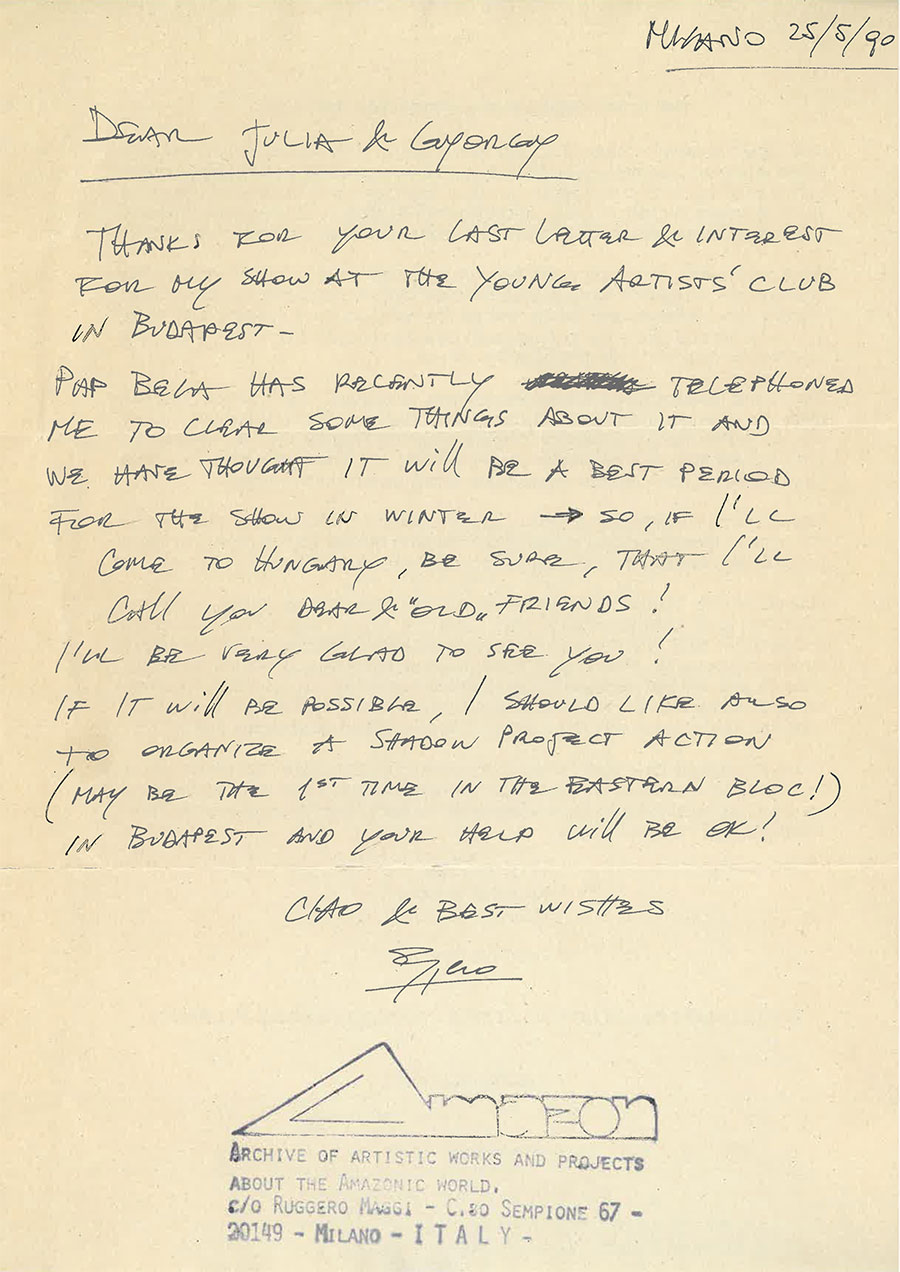 MILANO 25/5/90
DEAR JULIA & GYORGY
THANKS FOR YOUR LAST LETTER & INTEREST
FOR MY SHOW AT THE YOUNG ARTISTS' CLUB
IN BUDAPEST-
PAP BELA HAS RECENTLY TELEPHONED
ME TO CLEAR SOME THINGS ABOUT IT AND
WE HAVE THOUGHT IT will BE A BEST PERIOD
FOR THE SHOW IN WINTER → SO, IF I'LL
COME TO HUNGARY, BE SURE, THAT I'LL
CAll YOU DEAR & "OLD„ FRIENDS!
I'LL BE VERY GLAD TO SEE YOU!
IF IT will BE POSSIBLE, I SHOULD LIKE ALSO
TO ORGANIZE A SHADOW PROJECT ACTION
(MAY BE THE 1ST TIME IN THE EASTERN BLOC!)
IN BUDAPEST AND YOUR HELP will BE OK!
CIAO & BEST WISHES
AMAZON
ARCHIVE OF ARTISTIC WORKS AND PROJECTS
ABOUT THE AMAZONIC WORLD.
c/o RUGGERO MAGGI - C.SO SEMPIONE 67 -
20149 - MILANO - ITALY -